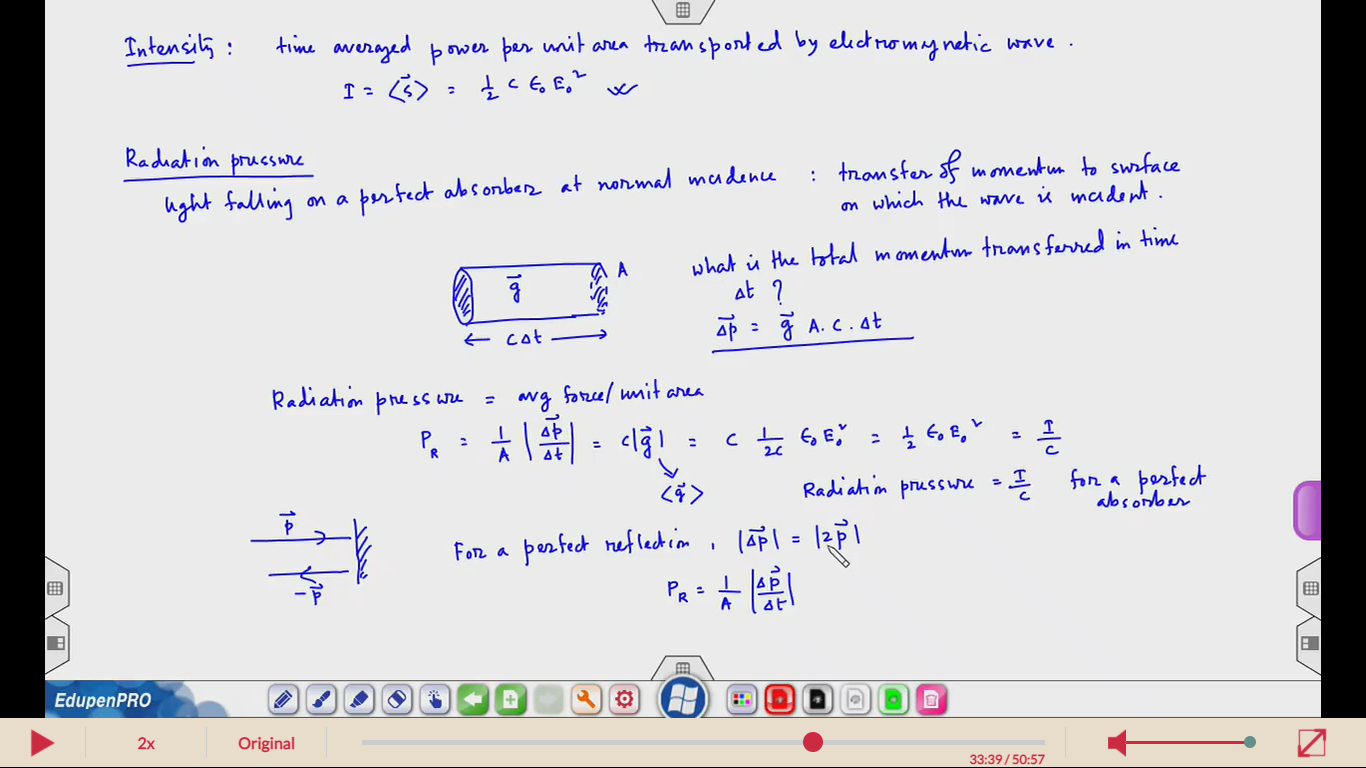 Intensity : time averaged power per unit area transported by electromagnetic wave .
I = ⟨S⃗⟩ = 1/2 c ϵ₀ E₀²
Radiation pressure
light falling on a perfect absorber at normal incidence : transfer of momentum to surface
on which the wave is incident .
g⃗ A
c Δt
what is the total momentum transferred in time
Δt ?
Δp⃗ = g⃗ A. c. Δt
Radiation pressure = avg force/unit area
P_R = 1/A |Δp⃗/Δt| = c|g⃗| = c 1/2c ϵ₀ E₀² = 1/2 ϵ₀ E₀² = I/c
⟨g⃗⟩
Radiation pressure = I/c for a perfect
absorber
p⃗
-p⃗
For a perfect reflection , |Δp⃗| = |2p⃗|
P_R = 1/A |Δp⃗/Δt|
EdupenPRO
2x Original 33:39 / 50:57